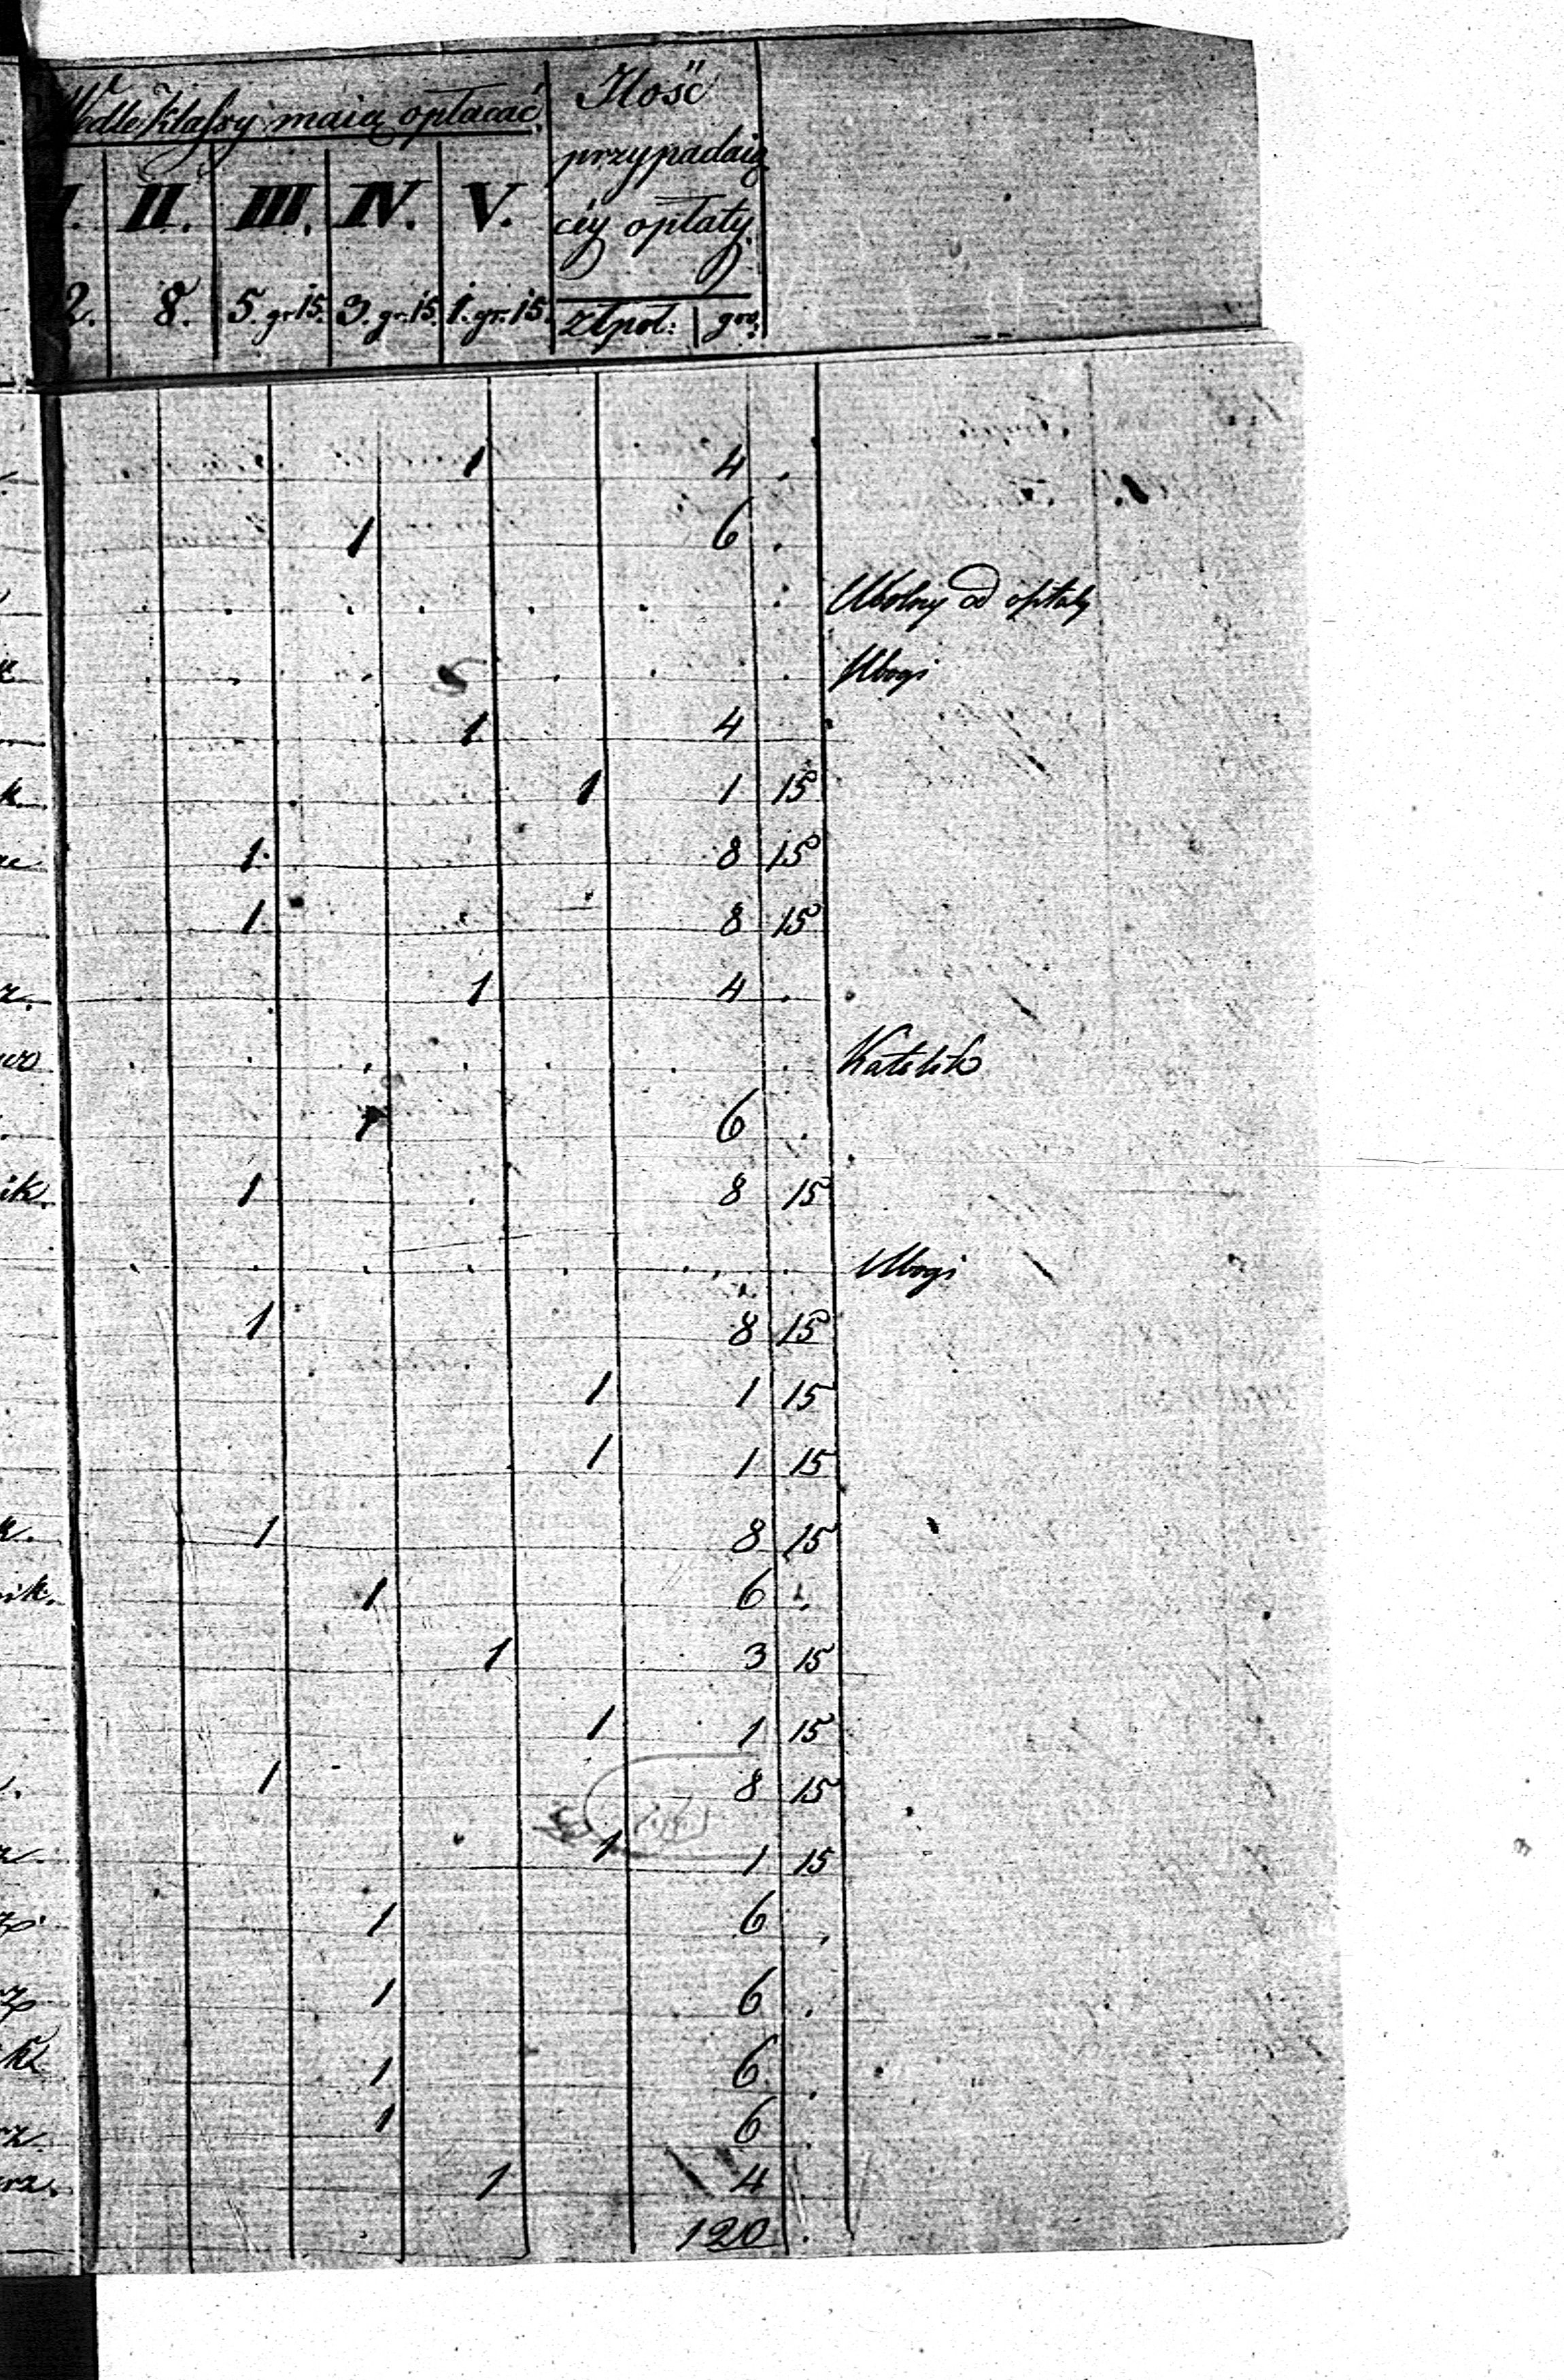 Wedle klassy maią opłacać Ilość
przypadaią
I. II. III. IV. V. cey opłaty
2. 8. 5. gr 15. 3. gr. 15. 1. gr. 15. złpol: gro:
1 4 .
1 6 .
Wolny od opłaty
Ubogi
1 4
k. 1 1 15
1 8 15
1 8 15
z. 1 4 .
Katolik
1 6 .
ik. 1 8 15
Ubogi
1 8 15
1 1 15
1 1 15
k. 1 8 15
ik. 1 6 .
1 3 15
1 1 15
1 8 15
1 1 15
1 6 .
1 6 .
1 6 .
rz. 1 6 .
rz. 1 4
120 .